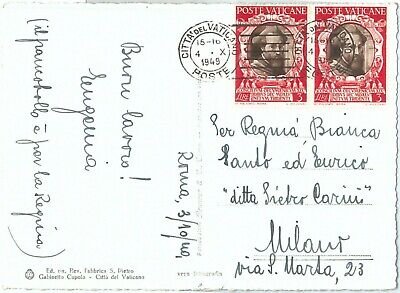 (il francobollo è per la Regina)
Buon lavoro!
Eugenia
Roma, 3/10/49
Ed. ris. Rev. Fabbrica S. Pietro
Gabinetto Cupola - Città del Vaticano
vera fotografia
CITTÀ DEL VATICANO
15-16
4 X
1949
POSTE
POSTE VATICANE
LIRE 3
POSTE VATICANE
LIRE 3
Per Regina Bianca
Santo ed Enrico
"ditta Pietro Carini"
Milano
via S. Marta, 23